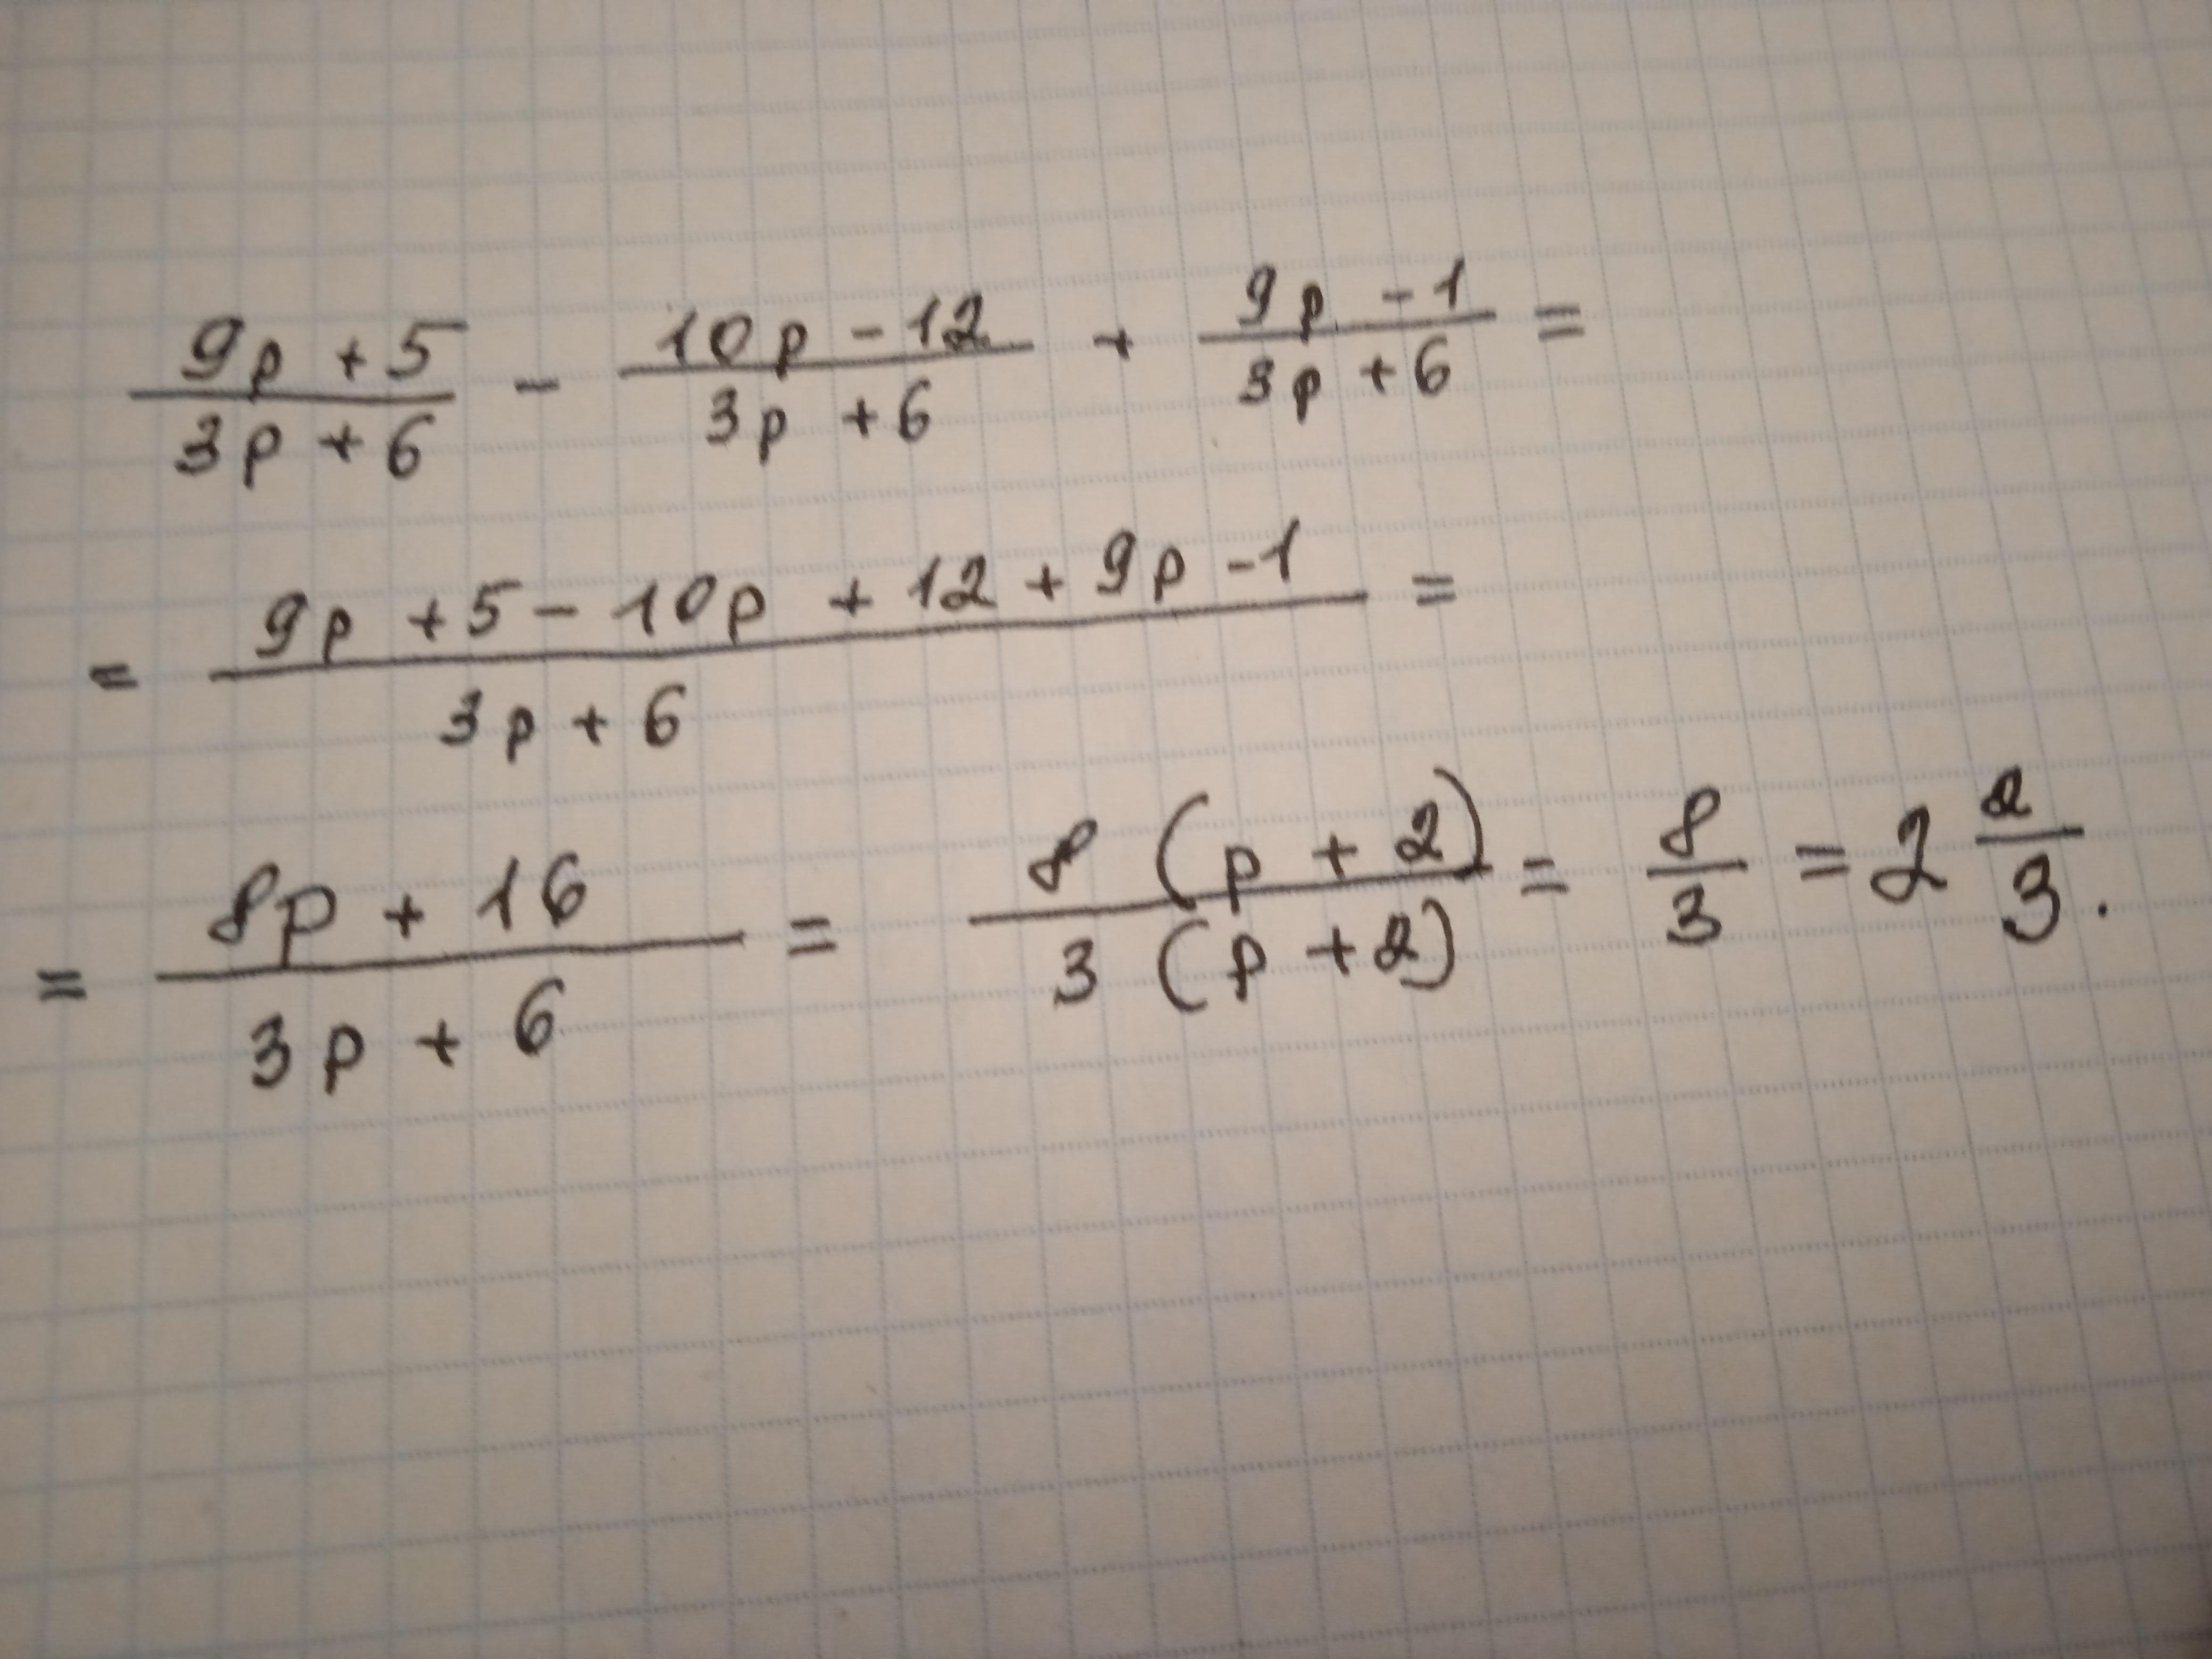 (9p + 5)/(3p + 6) - (10p - 12)/(3p + 6) + (9p - 1)/(3p + 6) =
= (9p + 5 - 10p + 12 + 9p - 1)/(3p + 6) =
= (8p + 16)/(3p + 6) = 8(p + 2)/3(p + 2) = 8/3 = 2 2/3.